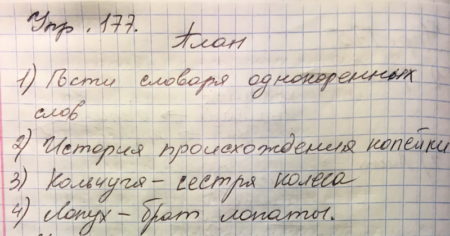 Упр. 177.
План
1) Гости словаря однокоренных
слов
2) История происхождения копейки
3) Кольчуга - сестра колеса
4) Лопух - брат лопаты.